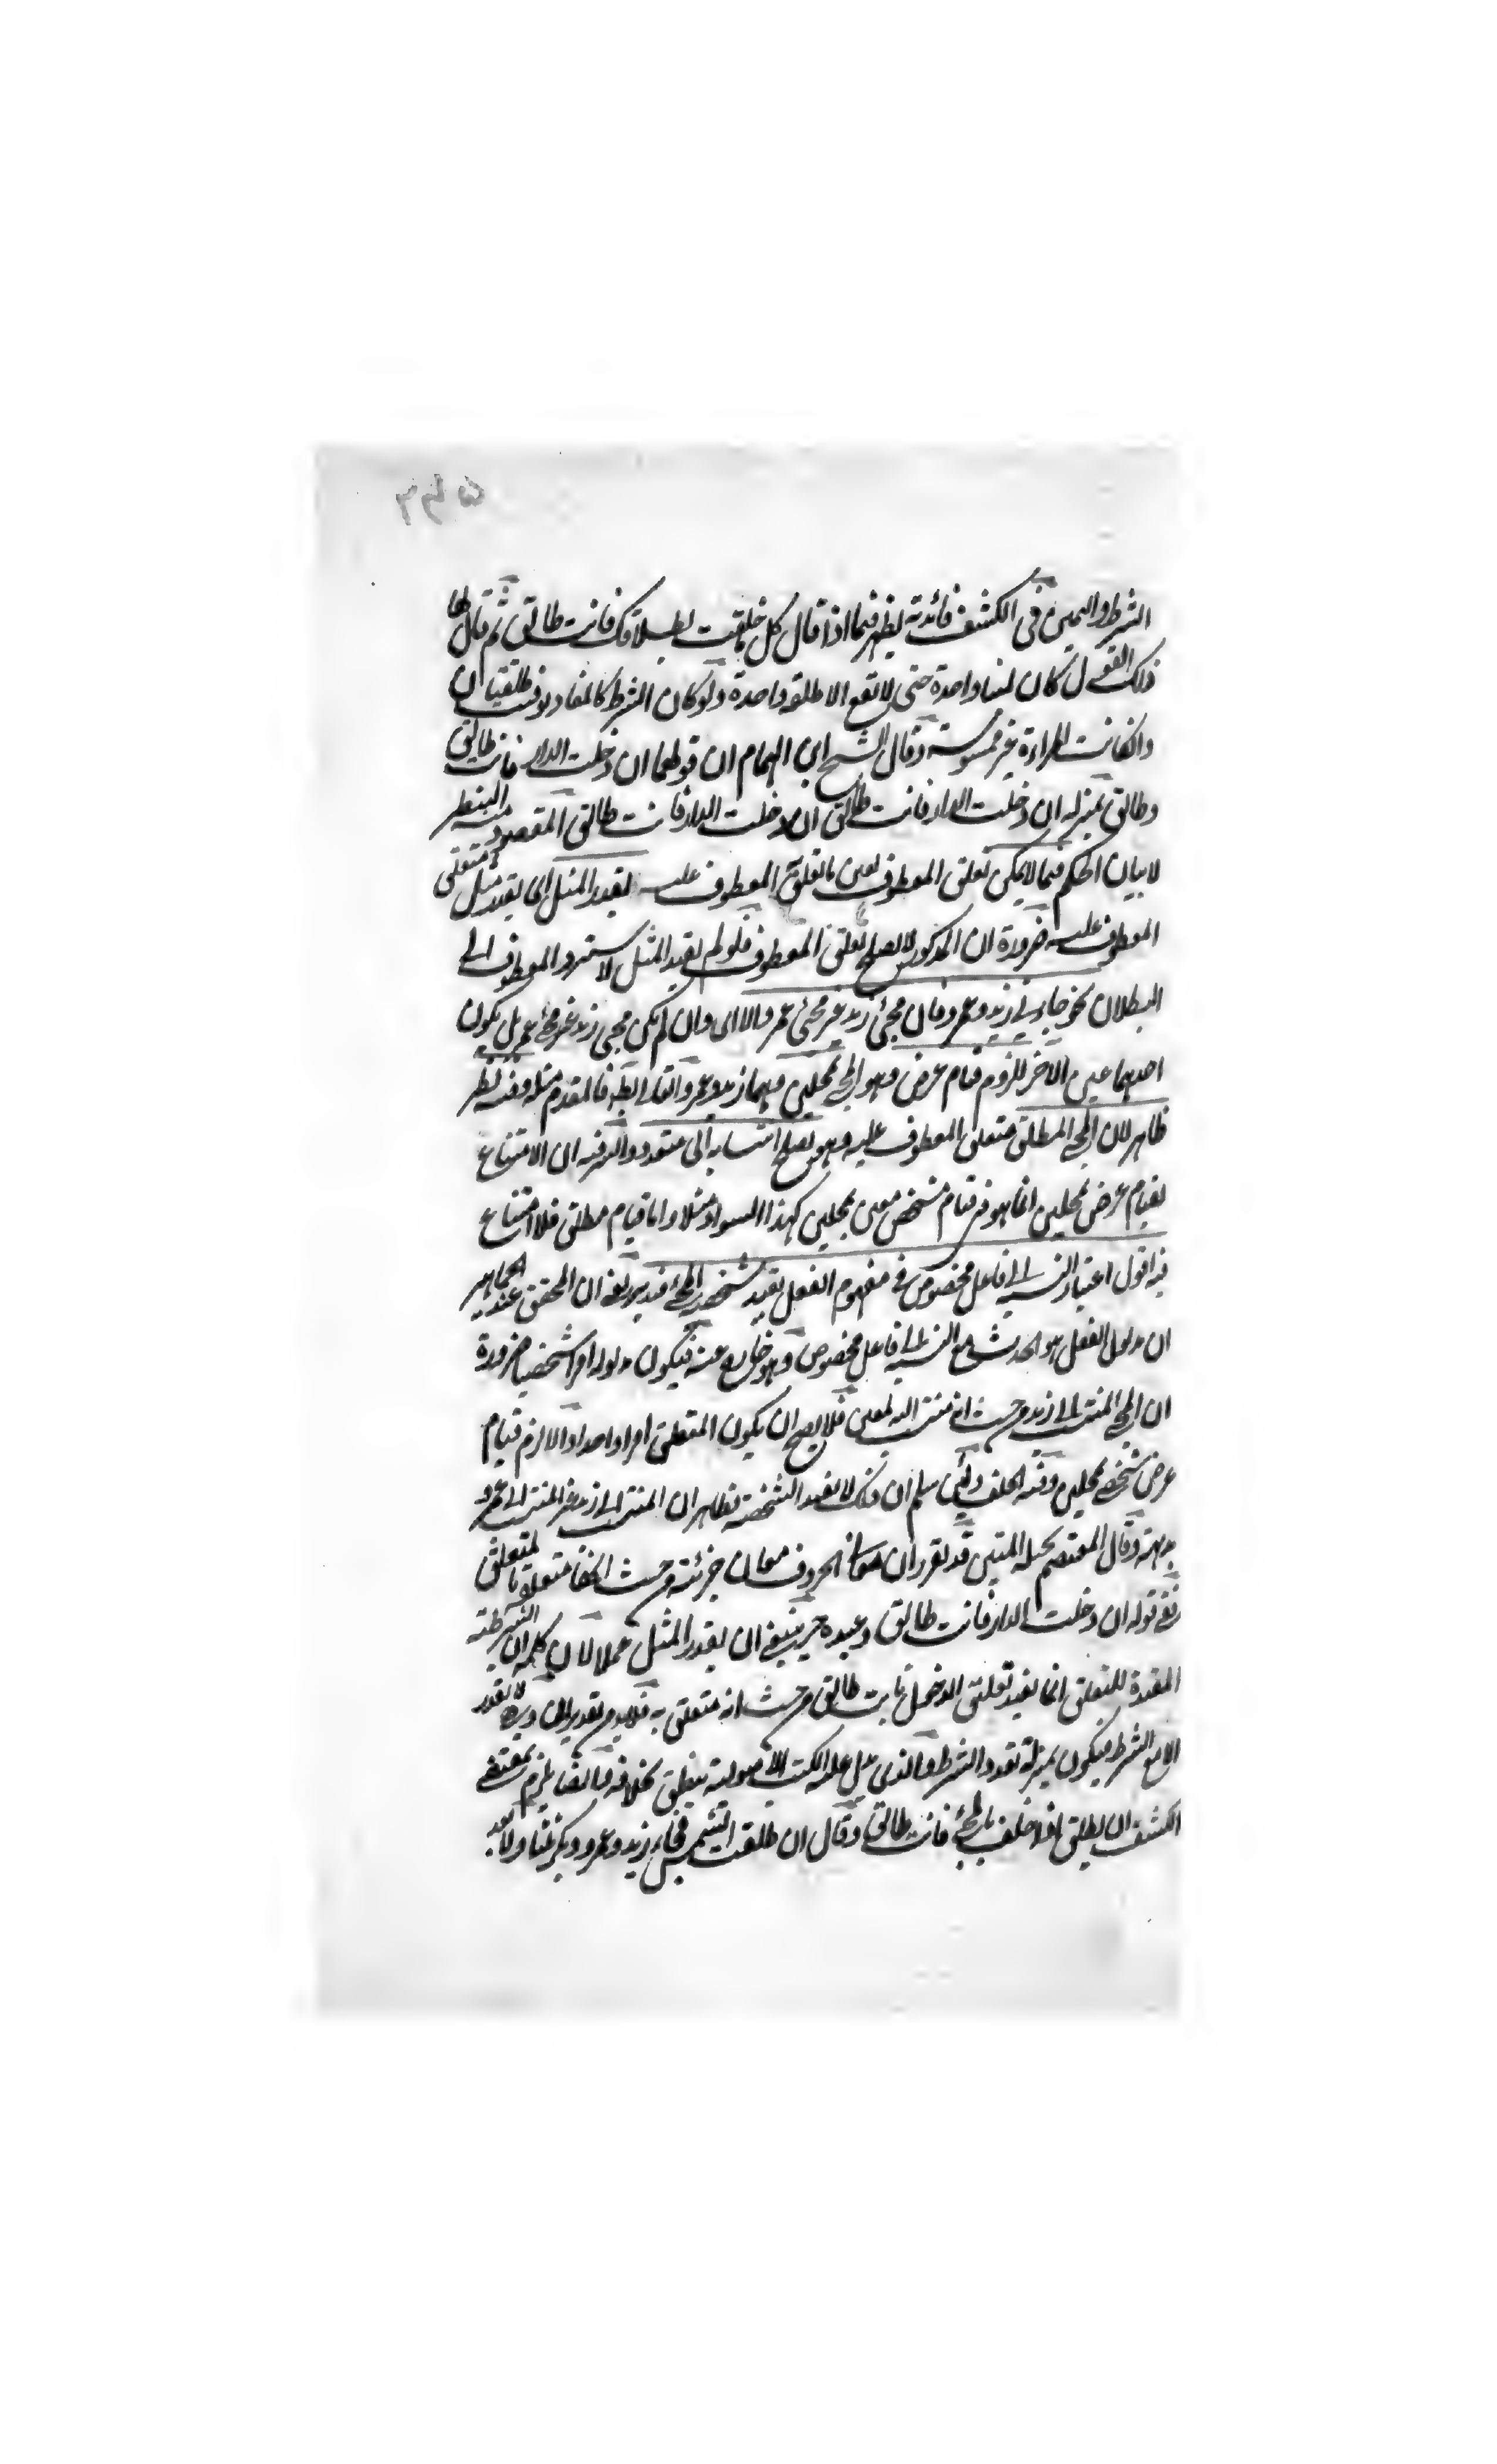 الشرط واليمين في الكشف فائدته يظهر فيما اذا قال كل ما خلفت بطلاقك فانت طالق ثم قال لها
ذلك القول كان يمينا واحدة حتى لا تقع الا طلقة واحدة ولو كان الشرط كالمعاد يوقعت طلقتان
وان كانت المراءة غير ممسوسة وقال الشيخ ابن الهمام ان قولهما ان دخلت الدار فانت طالق
وطالق بمنزلة ان دخلت الدار فانت طالق ان دخلت الدار فانت طالق المقصود منه التنظير
لا بيان الحكم فيما لا يمكن تعلق المعطوف بعين ما تعلق المعطوف عليه يقدر المثل اى يقدر مثل متعلق
المعطوف عليه ضرورة ان المذكور لا يصلح لتعلق المعطوف فلو لم يقدر المثل لا ستمرد المعطوف الى
البطلان نحو جاءني زيد وعمرو فان مجئ زيد غير مجئ عمرو والا اى وان لم يكن مجئ زيد غير مجئ عمرو بل يكون
احدهما عين الاخر للزوم قيام عرض وهو المجئ بمحلين وهما زيد وعمرو والتالى باطل فالمقدم مثله وفيه نظر
ظاهر لان المجئ المطلق متعلق المعطوف عليه وهو يصلح انتسابه الى متعدد والسر فيه ان الامتناع
لقيام عرض بمحلين انما هو في قيام مشخص معين بمحلين كهذا السواد مثلا واما قيام مطلق فلا امتناع
فيه اقول اعتبار النسبة الى فاعل مخصوص في مفهوم الفعل يفيد شخصية المجئ فتدبر يعني ان المحقق عند الجماهير
ان مدلول الفعل هو الحدث مع النسبة الى فاعل مخصوص وهو خارج عنه فيكون مدلوله امرا شخصيا ضرورة
ان المجئ المنتسب الى زيد من حيث انه منتسب اليه معين فلا يصح ان يكون المتعلق امرا واحدا والا لزم قيام
عرض شخصي بمحلين وفيه الخلف ولئن سلم ان ذلك لا يفيد الشخصية فظاهر ان المنتسب الى زيد غير المنتسب الى عمرو
بديهة وقال المعتصم بحبله المتين قد تقرر ان معاني الحروف معان جزئية من حيث انها متعلقة بالمتعلق
ففي قوله ان دخلت الدار فانت طالق وعبده حر ينبغي ان يقدر المثل عملا لان كلمة ان الشرطية
المفيدة للتعلق انما يفيد تعلق الدخول بانت طالق من حيث انه متعلق به فلا بد من تقدير ان وهو لا يقدر
الا مع الشرط فيكون بمنزلة تعدد الشرط والذي يدل عليه الكتب الاصولية ينطق بخلافه وايضا يلزم بمقتضى
الكشف ان يطلق اذا حلف بالمجئ فانت طالق وقال ان طلعت الشمس فجاء زيد وعمرو وبكر ثلثا ولا بعد